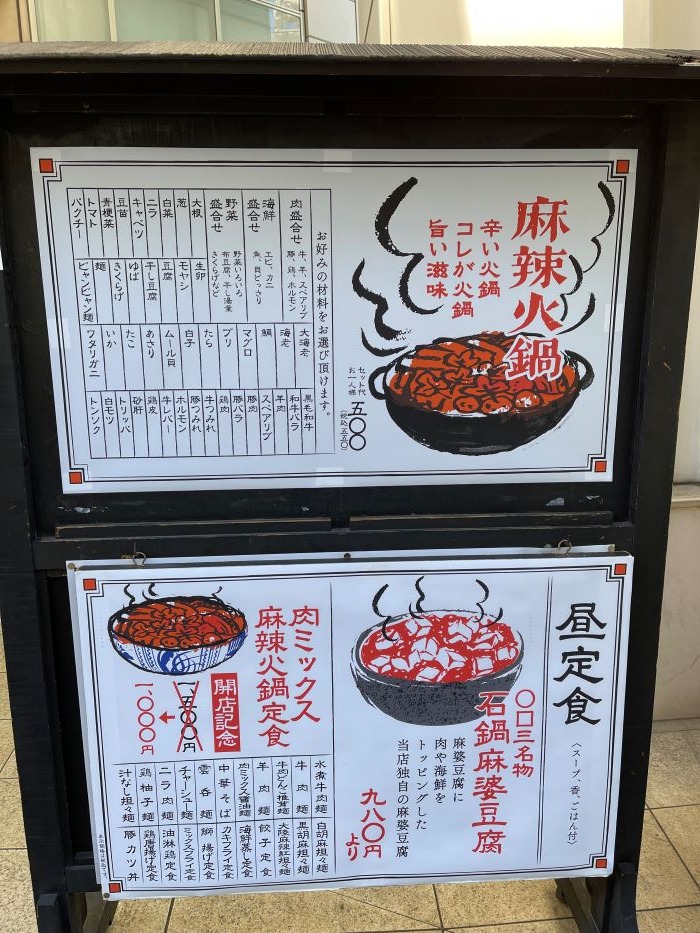 麻辣火鍋
辛い火鍋
コレが火鍋
旨い滋味
セット代
お一人様
五〇〇
(税込五五〇)
お好みの材料をお選び頂けます。
肉盛合せ
牛、羊、スペアリブ
豚、鶏、ホルモン
海鮮盛合せ
エビ、カニ
魚、貝どっさり
野菜盛合せ
野菜いろいろ
布豆腐、干し湯葉
きくらげなど
大根
葱
白菜
ニラ
キャベツ
豆苗
青梗菜
トマト
パクチー
生卵
モヤシ
豆腐
干し豆腐
ゆば
きくらげ
麺
ビャンビャン麺
大海老
海老
鯛
マグロ
ブリ
たら
白子
ムール貝
あさり
たこ
いか
ワタリガニ
黒毛和牛
和牛バラ
羊肉
スペアリブ
豚肉
豚バラ
鶏肉
牛つみれ
豚つみれ
ホルモン
牛レバー
鶏皮
砂肝
トリッパ
白モツ
トンソク
昼定食
(スープ、香、ごはん付)
〇口三名物
石鍋麻婆豆腐
麻婆豆腐に
肉や海鮮を
トッピングした
当店独自の麻婆豆腐
九八〇円より
肉ミックス
麻辣火鍋定食
開店記念
一、五〇〇円
一、〇〇〇円
水煮牛肉麺
牛肉麺
牛肉どんこ椎茸麺
羊肉麺
肉ミックス醤油麺
中華そば
雲呑麺
チャーシュー麺
ニラ肉麺
鶏柚子麺
汁なし坦々麺
白胡麻坦々麺
黒胡麻坦々麺
大陸麻辣紅坦々麺
餃子定食
海鮮蒸し定食
カキフライ定食
鰤揚げ定食
ミックスフライ定食
油淋鶏定食
鶏唐揚げ定食
豚カツ丼